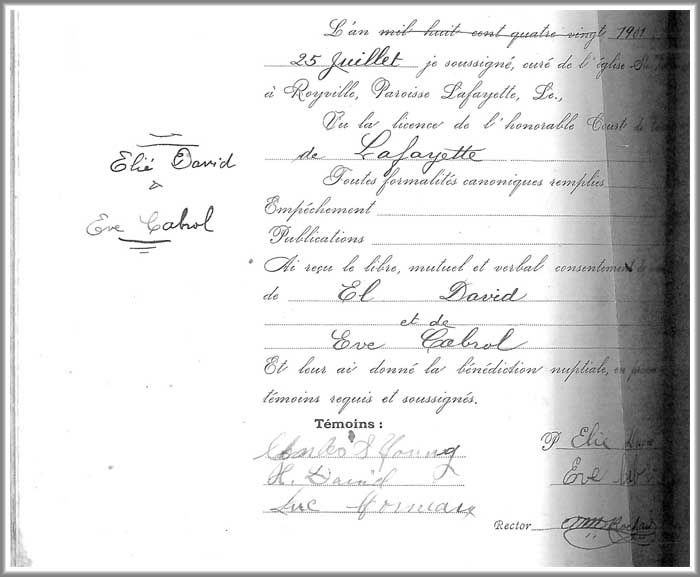 L'an mil huit cent quatre vingt 1901
25 Juillet je soussigné, curé de l'église St
à Royville, Paroisse Lafayette, Le.,
Vu la licence de l'honorable Court de
de Lafayette
Toutes formalités canoniques remplies
Empéchement
Publications
Ai reçu le libre, mutuel et verbal consentement de
de El David
et de
Eve Cabrol
Et leur ai donné la bénédiction nuptiale, en
témoins requis et soussignés.
Elié David
&
Eve Cabrol
Témoins :
Charles S Young
H. David
Luc
P Elie
Eve
Rector